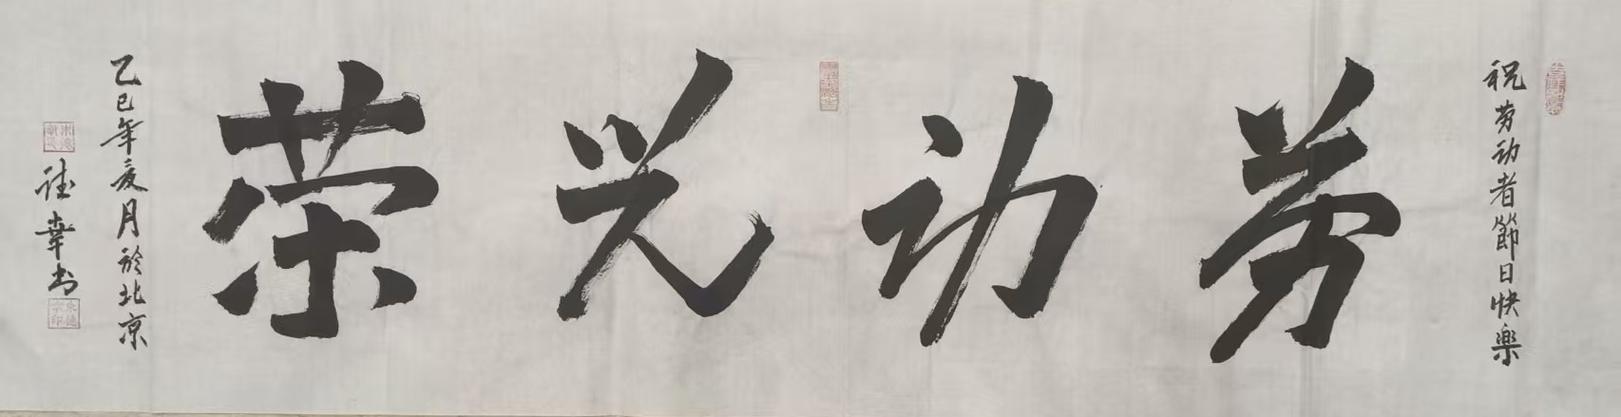 祝劳动者節日快樂
劳动光荣
乙巳年夏月於北京
德幸书